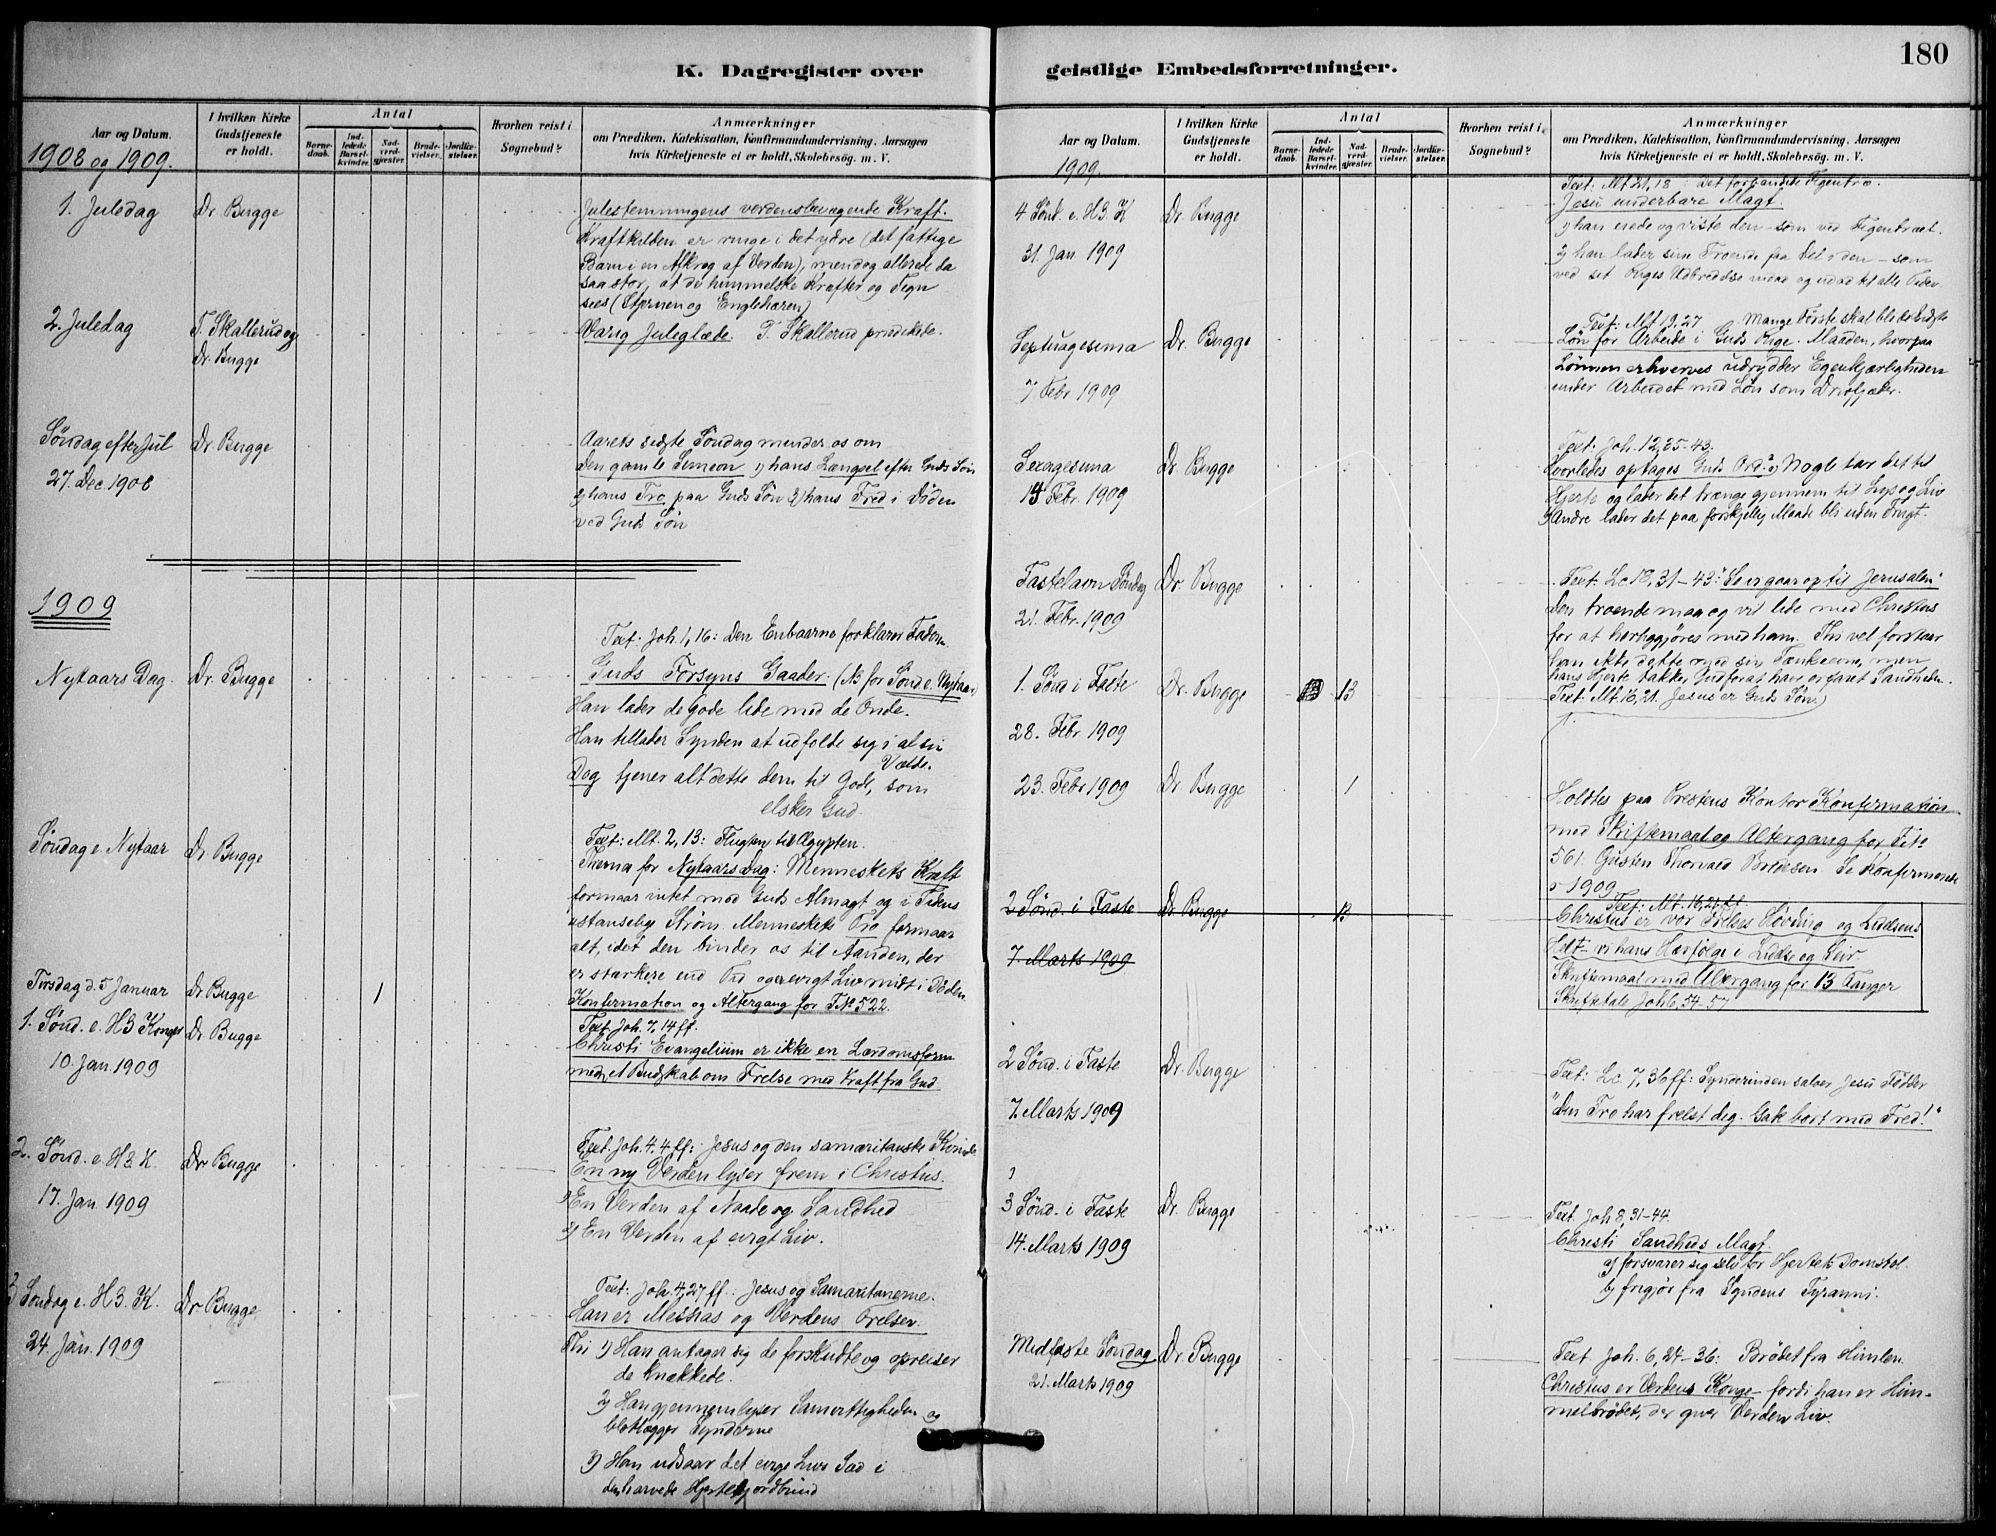 180
K. Dagregister over geistlige Embedsforretninger.
Aar og Datum.
I hvilken Kirke Gudstjeneste er holdt.
Antal
Barnedaab.
Indledede Barselkvinder.
Nadverdgjæster.
Brudevielser.
Jordfæstelser.
Hvorhen reist i Sognebud?
Anmærkninger
om Prædiken, Katekisation, Konfirmandundervisning, Aarsagen
hvis Kirketjeneste ei er holdt, Skolebesøg. m. V.
1908 og 1909.
1. Juledag Dr Bugge
Julestemningens verdensbevægende Kraft.
Kraftkilden er ringe i det ydre (det fattige
Barn i en Afkrog af Verden), men dog allerede da
saa stor, at de himmelske Kræfter og Tegn
sees (Stjernen og Englehæren)
2. Juledag T. Skallerud og
Dr. Bugge
Varig Juleglæde. T. Skallerud prædikede.
Søndag efter Jul Dr. Bugge
27. Dec 1908
Aarets sidste Søndag minder os om
den gamle Simeon 1) hans Længsel efter Guds Søn
2) hans Tro paa Guds Søn 3) hans Fred i Døden
ved Guds Søn
1909
Nytaars Dag. Dr. Bugge
Text: Joh. 1, 16: Den Enbaarne forklarer Faderen
Guds Forsyns Gaader. (NB for Sønd e. Nytaar)
Han lader de gode lide med de Onde.
Han tillader Synden at udfolde sig i al sin
Vælde.
Dog tjener alt dette dem til Gode, som
elsker Gud.
Søndag e. Nytaar Dr Bugge
Text: Mt. 2, 13: Flugten til Ægypten.
Thema for Nytaarsdag: Menneskets Kraft
formaar intet mod Guds Almagt og i Tidens
ustanselig Strøm Menneskets Tro formaar
alt, idet den binder os til Aanden, der
er stærkere end Tid og er evigt Liv midt i Døden.
Tirsdag d. 5 Januar Dr Bugge 1
Konfirmation og Altergang for F No 522.
1. Sønd. e. H3 Konger Dr Bugge
10. Jan. 1909
Text Joh. 7, 14 ff.
Christi Evangelium er ikke en Lærdomsform
men et Budskab om Frelse med Kraft fra Gud
2. Sønd. e. H3. K. Dr Bugge
17. Jan. 1909
Text Joh. 4. 4 ff: Jesus og den samaritanske Kvinde
En ny Verden lyser frem i Christus.
1) En Verden af Naade og Sandhed
2) En Verden af evigt Liv.
3 Søndag e. H3. K. Dr Bugge
24. Jan. 1909
Text: Joh. 4, 27 ff.: Jesus og Samaritanerne.
Han er Messias og Verdens Frelser.
Thi 1) Han antager sig de forskudte og opreiser
de knækkede.
2) Han gjennemlyser Samvittigheden og
blotlægger Synderne
3) Han udsaar det evige Livs Sæd i
den harvede Hjertejordbund
Aar og Datum.
I hvilken Kirke Gudstjeneste er holdt.
Antal
Barnedaab.
Indledede Barselkvinder.
Nadverdgjæster.
Brudevielser.
Jordfæstelser.
Hvorhen reist i Sognebud?
Anmærkninger
om Prædiken, Katekisation, Konfirmandundervisning, Aarsagen
hvis Kirketjeneste ei er holdt, Skolebesøg. m. V.
1909.
4 Sønd. e. H3. K Dr. Bugge
31. Jan. 1909
Text: Mt 21, 18 Det forbandede Figentræ.
Jesu underbare Magt.
1) han eiede og viste den - som ved Figentræet.
2) han lader sine Troende faa Del i den - som
ved sit Riges Udbredelse indad og udad til alle Tider.
Septuagesima Dr. Bugge
7 Febr 1909
Text: Mt 19, 27 Mange Første skal blive sidste
Løn for Arbeide i Guds Rige. Maaden, hvorpaa
Lønnen erhverves udrydder Egenkjærligheden
under Arbeidet med Løn som Drivfjæder.
Sexagesima Dr Bugge
14 Febr. 1909
Text: Joh. 12, 35-43.
Hvorledes optages Guds Ord? 1) Nogle tar det til
Hjerte og lader det trænge gjennem til Lys og Liv
2) Andre lader det paa forskjellig Maade bli uden Frugt.
Fastelavn Søndag Dr. Bugge
21. Febr. 1909
Text: Lc 18, 31-43: "Se vi gaar op til Jerusalem"
Den troende maa og vil lide med Christus
for at herliggjøres med ham. Thi vel forstaar
han ikke dette med sin Tænkeevne, men
hans Hjerte takker Gud for at have erfaret Sandheden.
1. Sønd i Faste Dr. Bugge 13
28. Febr 1909
Text: Mt. 16, 21. Jesus er Guds Søn.)
23. Febr 1909 Dr Bugge 1
Holdtes paa Prestens Kontor Konfirmation
med Skriftemaal og Altergang for F No
561. Gusten Thorvald Se Konfirmerede
1909
2 Sønd. i Faste Dr Bugge
7 Marts 1909
Text: Mt. 16, 21 ff.
Christus er vor Høvding og Lidelsens
Helt - vi hans Hærfølge i Lidelse og Seir
Skriftemaal med Altergang for 13 Fanger
Skriftetale Joh 6, 54-57
2 Sønd. i Faste Dr. Bugge
7. Marts 1909
Text: Lc. 7, 36 ff: Synderinden salver Jesu Fødder
"Din Tro har frelst dig. Gak bort med Fred!"
3 Sønd. i Faste Dr. Bugge
14. Marts 1909
Text Joh 8, 31-44.
Christi Sandheds Magt
a) forsvarer sig selv for Hjertets Domstol.
b) frigjør fra Syndens Tyranni.
Midfaste Søndag Dr. Bugge
21. Marts 1909
Text Joh. 6, 24-36: Brødet fra Himlen.
Christus er Verdens Konge - fordi han er Him-
melbrødet, der giver Verden Liv.